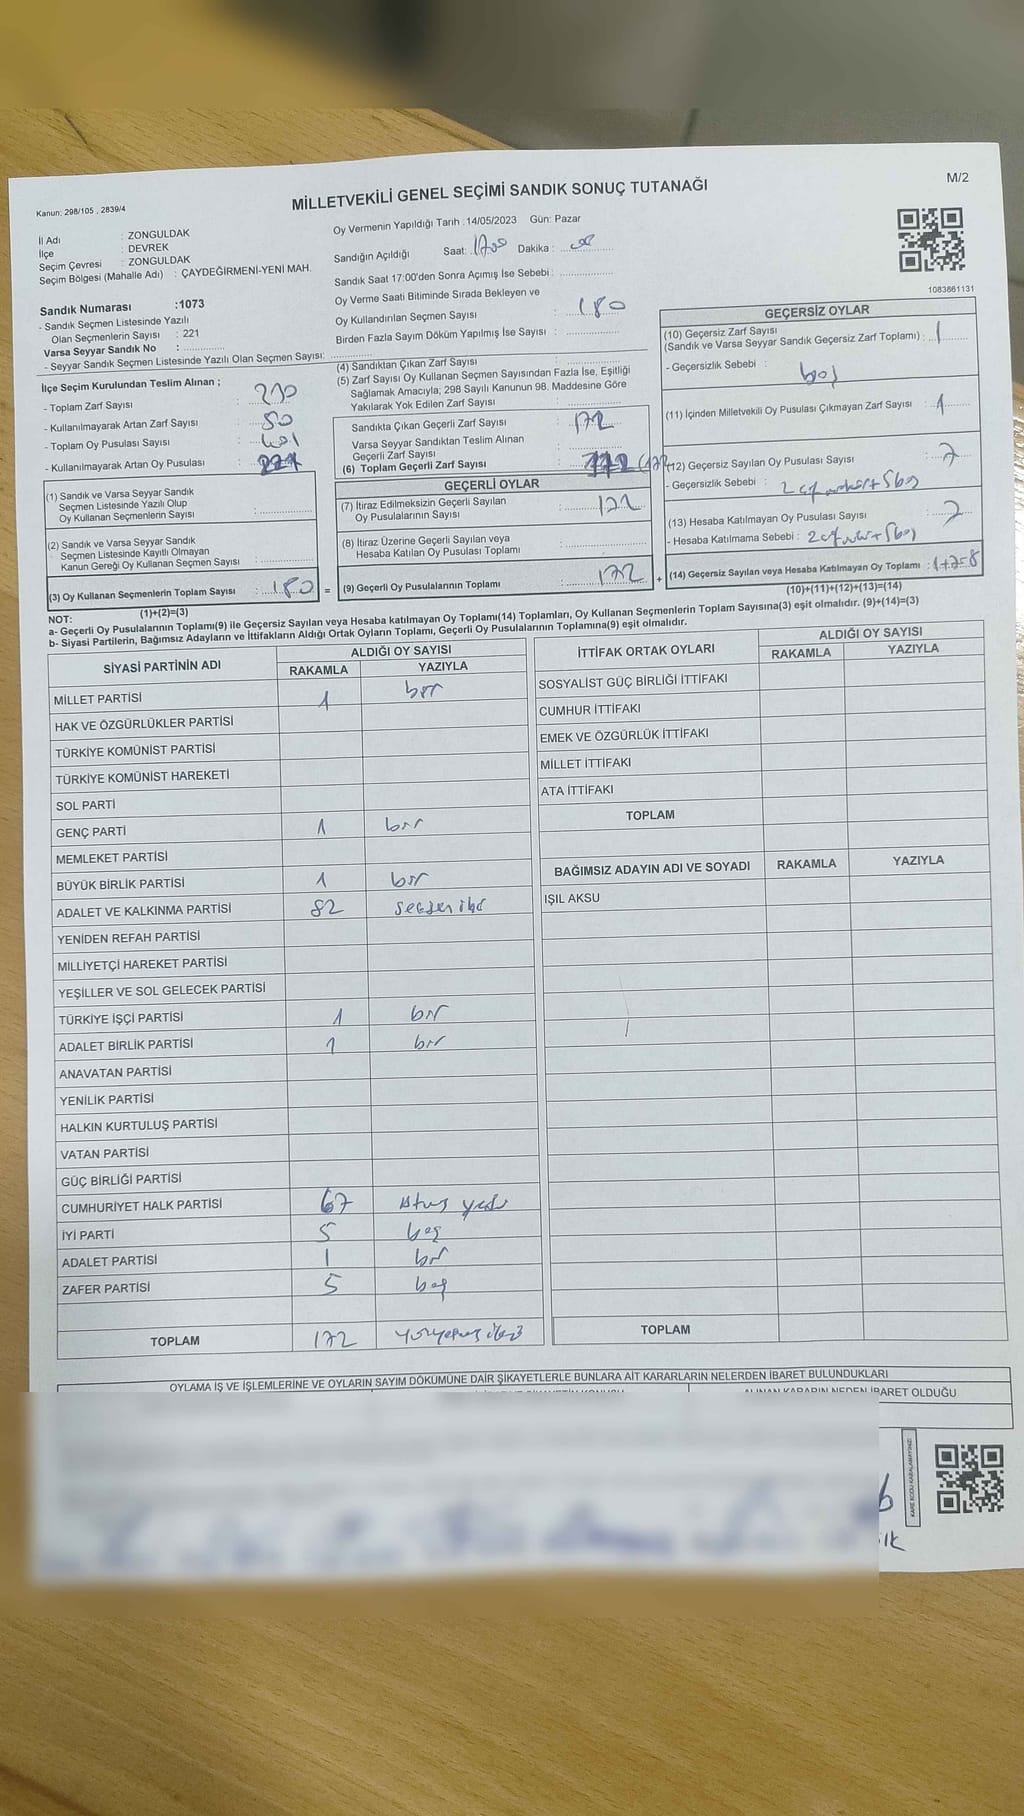 M/2
MİLLETVEKİLİ GENEL SEÇİMİ SANDIK SONUÇ TUTANAĞI
Kanun: 298/105 , 2839/4
İl Adı : ZONGULDAK
İlçe : DEVREK
Seçim Çevresi : ZONGULDAK
Seçim Bölgesi (Mahalle Adı) : ÇAYDEĞİRMENİ-YENİ MAH.
Sandık Numarası :1073
- Sandık Seçmen Listesinde Yazılı
Olan Seçmenlerin Sayısı : 221
Varsa Seyyar Sandık No :
- Seyyar Sandık Seçmen Listesinde Yazılı Olan Seçmen Sayısı:
Oy Vermenin Yapıldığı Tarih : 14/05/2023 Gün: Pazar
Sandığın Açıldığı Saat: 1700 Dakika : 00
Sandık Saat 17:00'den Sonra Açımış İse Sebebi :
Oy Verme Saati Bitiminde Sırada Bekleyen ve
Oy Kullandırılan Seçmen Sayısı : 180
Birden Fazla Sayım Döküm Yapılmış İse Sayısı :
1083861131
İlçe Seçim Kurulundan Teslim Alınan ;
- Toplam Zarf Sayısı : 230
- Kullanılmayarak Artan Zarf Sayısı : 50
- Toplam Oy Pusulası Sayısı : 401
- Kullanılmayarak Artan Oy Pusulası : 221
(1) Sandık ve Varsa Seyyar Sandık
Seçmen Listesinde Yazılı Olup
Oy Kullanan Seçmenlerin Sayısı :
(2) Sandık ve Varsa Seyyar Sandık
Seçmen Listesinde Kayıtlı Olmayan
Kanun Gereği Oy Kullanan Seçmen Sayısı :
(3) Oy Kullanan Seçmenlerin Toplam Sayısı : 180 =
(1)+(2)=(3)
(4) Sandıktan Çıkan Zarf Sayısı :
(5) Zarf Sayısı Oy Kullanan Seçmen Sayısından Fazla İse, Eşitliği
Sağlamak Amacıyla; 298 Sayılı Kanunun 98. Maddesine Göre
Yakılarak Yok Edilen Zarf Sayısı :
Sandıkta Çıkan Geçerli Zarf Sayısı : 172
Varsa Seyyar Sandıktan Teslim Alınan
Geçerli Zarf Sayısı :
(6) Toplam Geçerli Zarf Sayısı : 172 (172
GEÇERLİ OYLAR
(7) İtiraz Edilmeksizin Geçerli Sayılan
Oy Pusulalarının Sayısı : 172
(8) İtiraz Üzerine Geçerli Sayılan veya
Hesaba Katılan Oy Pusulası Toplamı :
(9) Geçerli Oy Pusulalarının Toplamı : 172 +
GEÇERSİZ OYLAR
(10) Geçersiz Zarf Sayısı
(Sandık ve Varsa Seyyar Sandık Geçersiz Zarf Toplamı) : 1
- Geçersizlik Sebebi : boş
(11) İçinden Milletvekili Oy Pusulası Çıkmayan Zarf Sayısı : 1
(12) Geçersiz Sayılan Oy Pusulası Sayısı : 7
- Geçersizlik Sebebi : 2 + 5 boş
(13) Hesaba Katılmayan Oy Pusulası Sayısı : 7
- Hesaba Katılmama Sebebi : 2 + 5 boş
(14) Geçersiz Sayılan veya Hesaba Katılmayan Oy Toplamı : 1+7=8
(10)+(11)+(12)+(13)=(14)
NOT:
a- Geçerli Oy Pusulalarının Toplamı(9) ile Geçersiz Sayılan veya Hesaba katılmayan Oy Toplamı(14) Toplamları, Oy Kullanan Seçmenlerin Toplam Sayısına(3) eşit olmalıdır. (9)+(14)=(3)
b- Siyasi Partilerin, Bağımsız Adayların ve İttifakların Aldığı Ortak Oyların Toplamı, Geçerli Oy Pusulalarının Toplamına(9) eşit olmalıdır.
SİYASİ PARTİNİN ADI ALDIĞI OY SAYISI
RAKAMLA YAZIYLA
MİLLET PARTİSİ 1 bir
HAK VE ÖZGÜRLÜKLER PARTİSİ
TÜRKİYE KOMÜNİST PARTİSİ
TÜRKİYE KOMÜNİST HAREKETİ
SOL PARTİ
GENÇ PARTİ 1 bir
MEMLEKET PARTİSİ
BÜYÜK BİRLİK PARTİSİ 1 bir
ADALET VE KALKINMA PARTİSİ 82 seksen iki
YENİDEN REFAH PARTİSİ
MİLLİYETÇİ HAREKET PARTİSİ
YEŞİLLER VE SOL GELECEK PARTİSİ
TÜRKİYE İŞÇİ PARTİSİ 1 bir
ADALET BİRLİK PARTİSİ 1 bir
ANAVATAN PARTİSİ
YENİLİK PARTİSİ
HALKIN KURTULUŞ PARTİSİ
VATAN PARTİSİ
GÜÇ BİRLİĞİ PARTİSİ
CUMHURİYET HALK PARTİSİ 67 altmış yedi
İYİ PARTİ 5 beş
ADALET PARTİSİ 1 bir
ZAFER PARTİSİ 5 beş
TOPLAM 172 yüzyetmiş iki
İTTİFAK ORTAK OYLARI ALDIĞI OY SAYISI
RAKAMLA YAZIYLA
SOSYALİST GÜÇ BİRLİĞİ İTTİFAKI
CUMHUR İTTİFAKI
EMEK VE ÖZGÜRLÜK İTTİFAKI
MİLLET İTTİFAKI
ATA İTTİFAKI
TOPLAM
BAĞIMSIZ ADAYIN ADI VE SOYADI RAKAMLA YAZIYLA
IŞIL AKSU
TOPLAM
OYLAMA İŞ VE İŞLEMLERİNE VE OYLARIN SAYIM DÖKÜMÜNE DAİR ŞİKAYETLERLE BUNLARA AİT KARARLARIN NELERDEN İBARET BULUNDUKLARI
ALINAN KARARIN NEDEN İBARET OLDUĞU